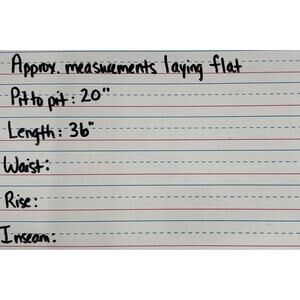 Approx. measurements laying flat
Pit to pit: 20"
Length: 36"
Waist:
Rise:
Inseam: